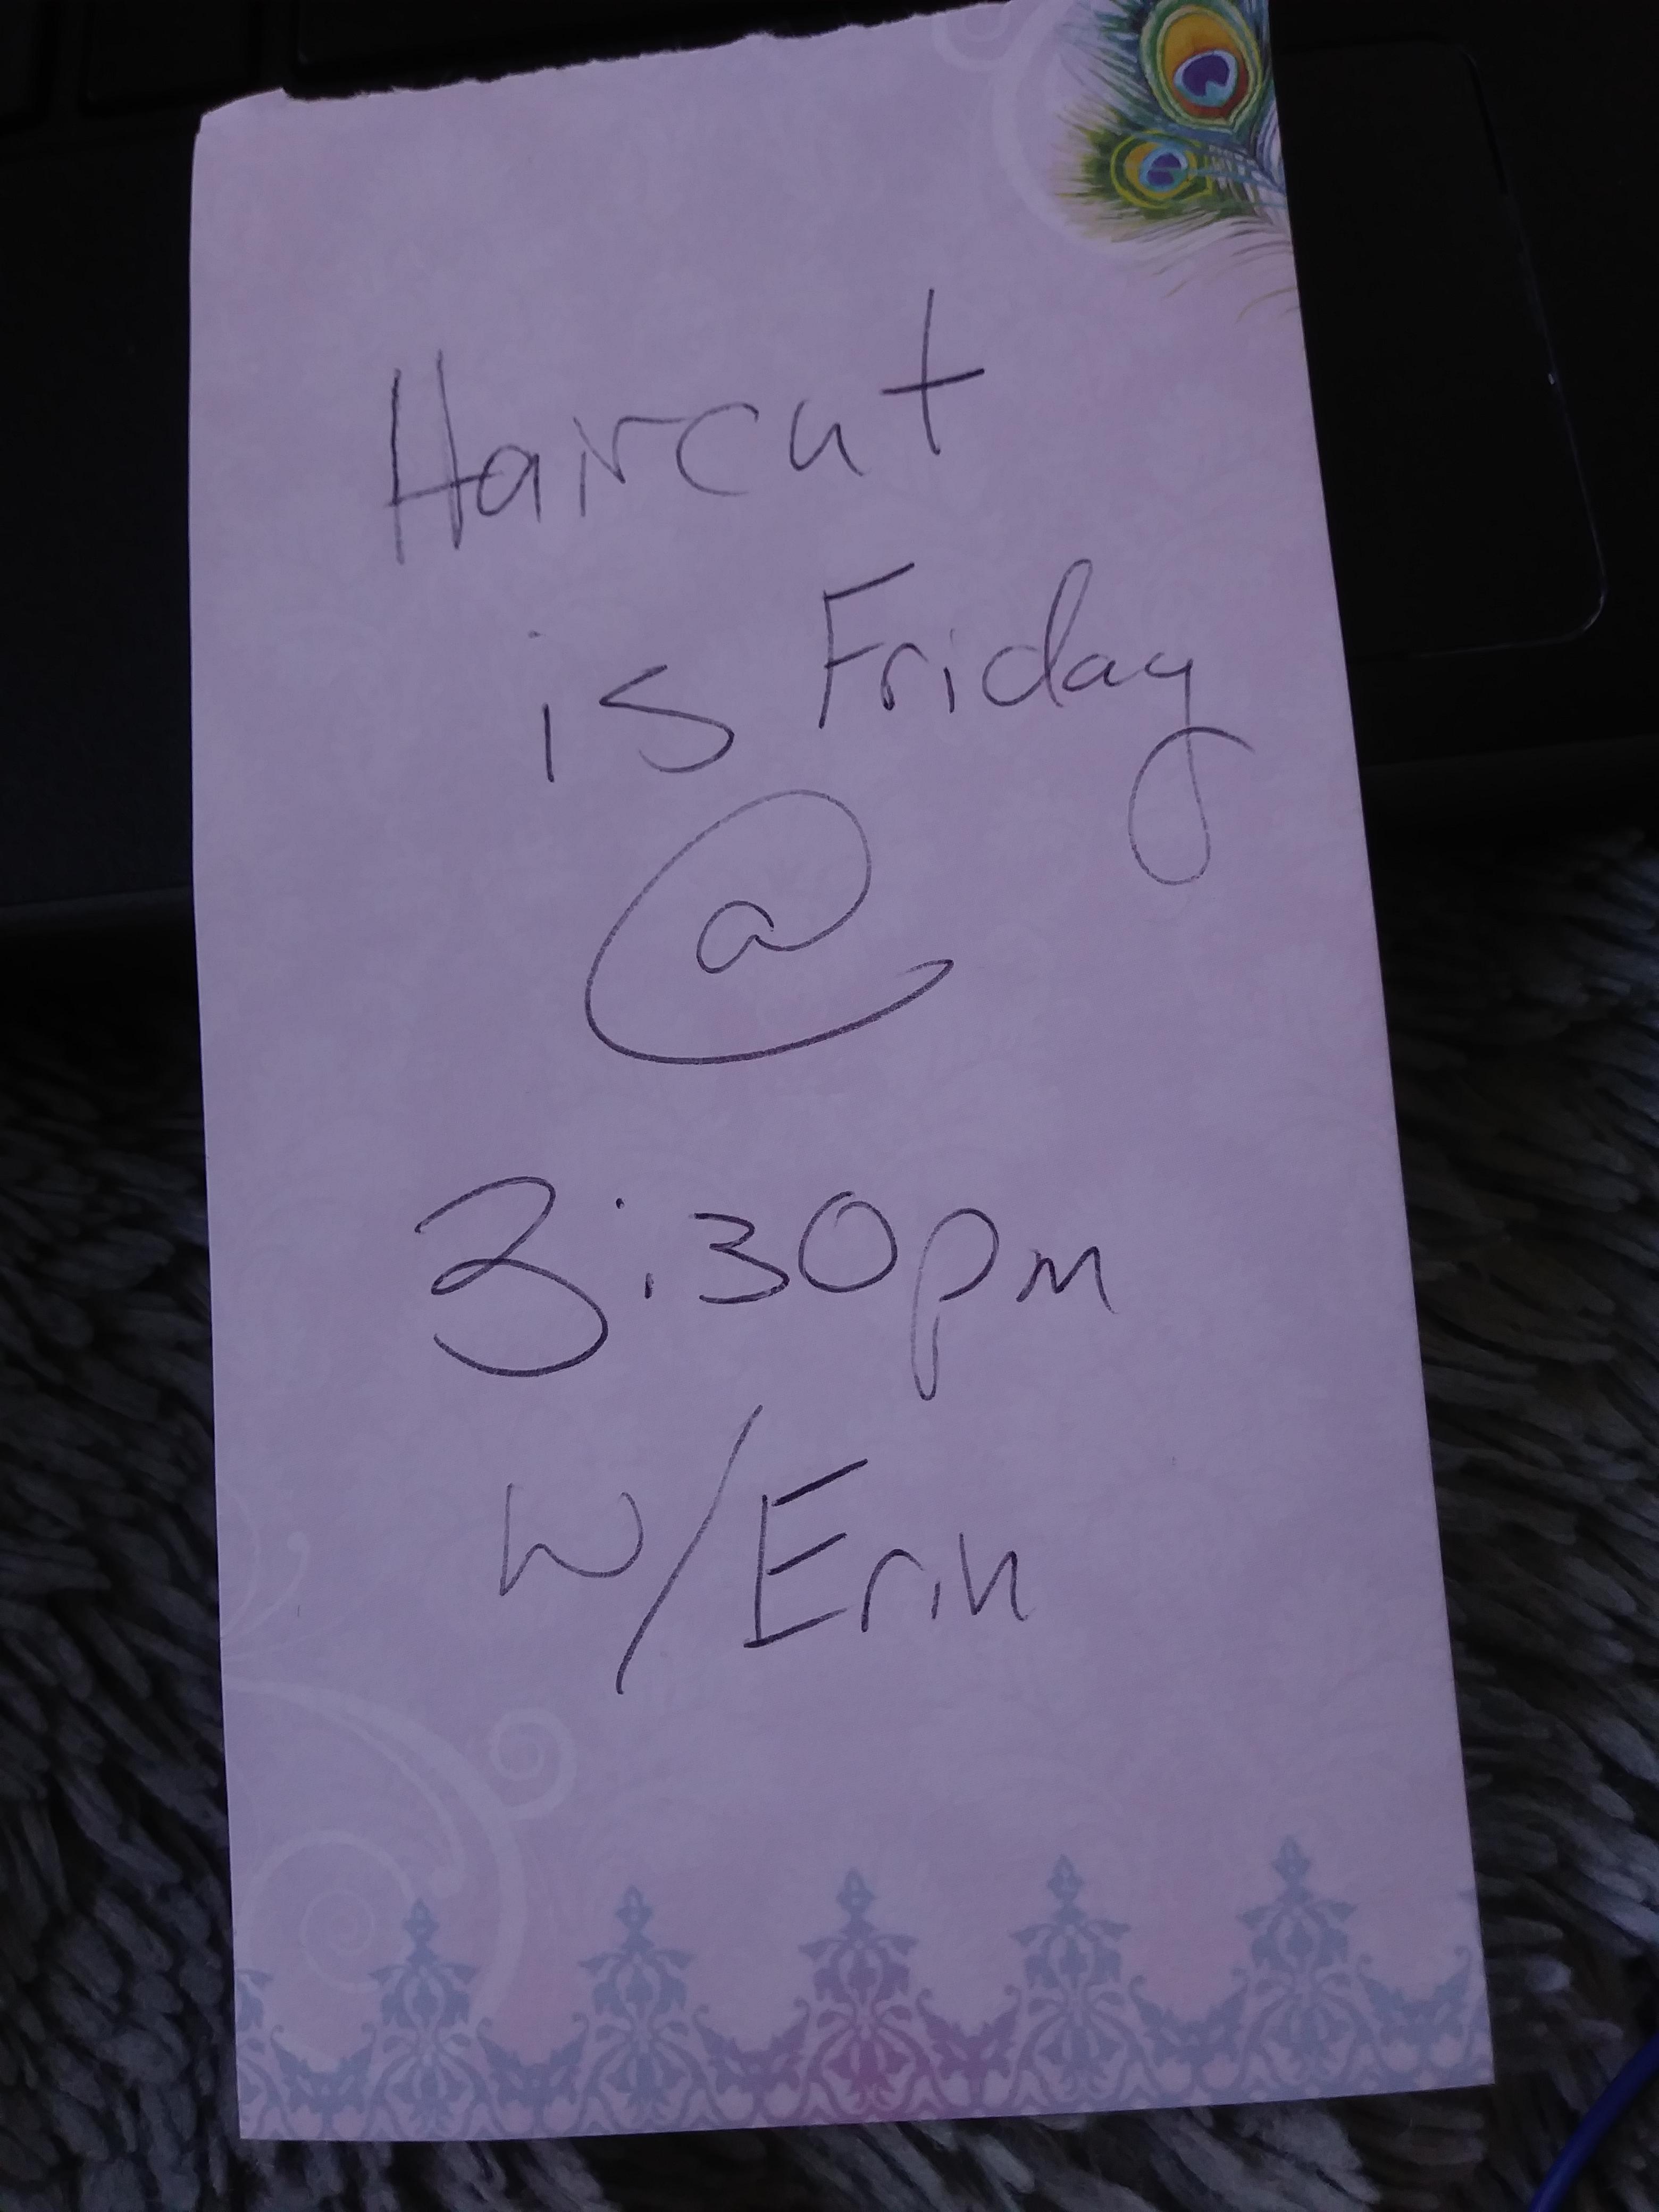 Haircut
is Friday
@
3:30pm
w/Erin